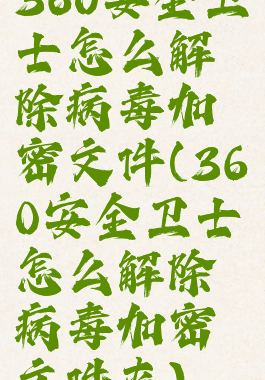 360安全卫
士怎么解
除病毒加
密文件(36
0安全卫士
怎么解除
病毒加密
文件夹)